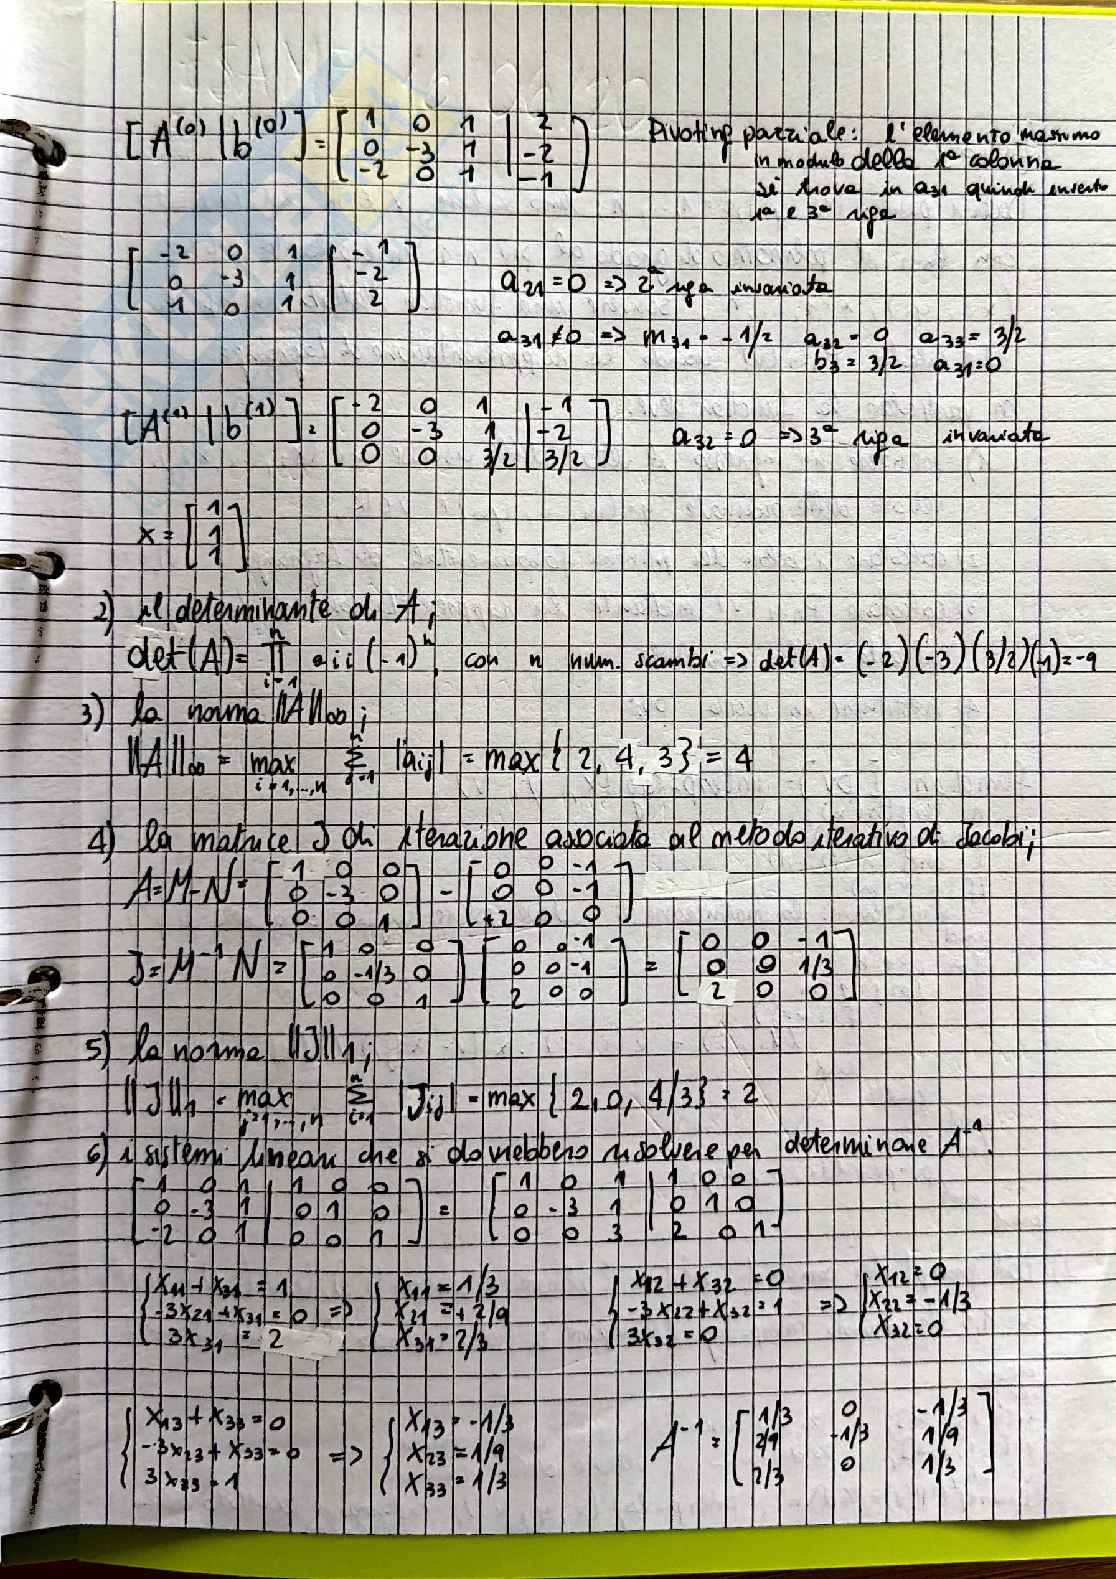 [A^(0) | b^(0)] = [ 1 0 1 | 2 ; 0 -3 1 | -2 ; -2 0 1 | -1 ]
Pivoting parziale: l'elemento massimo
in modulo della 1ª colonna
si trova in a31 quindi inverto
1ª e 3ª riga
[ -2 0 1 | -1 ; 0 -3 1 | -2 ; 1 0 1 | 2 ]
a21 = 0 => 2ª riga invariata
a31 ≠ 0 => m31 = -1/2 a32 = 0 a33 = 3/2
b3 = 3/2 a31 = 0
[A^(1) | b^(1)] = [ -2 0 1 | -1 ; 0 -3 1 | -2 ; 0 0 3/2 | 3/2 ]
a32 = 0 => 3ª riga invariata
x = [ 1 ; 1 ; 1 ]
2) il determinante di A;
det(A) = ∏_{i=1}^{n} aii (-1)^n, con n num. scambi => det(A) = (-2)(-3)(3/2)(-1) = -9
3) la norma ||A||∞;
||A||∞ = max_{i=1,...,n} Σ_{j=1}^{n} |aij| = max{2, 4, 3} = 4
4) la matrice J di iterazione associata al metodo iterativo di Jacobi;
A = M - N = [ 1 0 0 ; 0 -3 0 ; 0 0 1 ] - [ 0 0 -1 ; 0 0 -1 ; +2 0 0 ]
J = M^-1 N = [ 1 0 0 ; 0 -1/3 0 ; 0 0 1 ] [ 0 0 -1 ; 0 0 -1 ; 2 0 0 ] = [ 0 0 -1 ; 0 0 1/3 ; 2 0 0 ]
5) la norma ||J||1;
||J||1 = max_{j=1,...,n} Σ_{i=1}^{n} |Jij| = max{2, 0, 4/3} = 2
6) i sistemi lineari che si dovrebbero risolvere per determinare A^-1.
[ 1 0 1 | 1 0 0 ; 0 -3 1 | 0 1 0 ; -2 0 1 | 0 0 1 ] = [ 1 0 1 | 1 0 0 ; 0 -3 1 | 0 1 0 ; 0 0 3 | 2 0 1 ]
{ x11 + x31 = 1 ; -3x21 + x31 = 0 ; 3x31 = 2 => { x11 = 1/3 ; x21 = +2/9 ; x31 = 2/3
{ x12 + x32 = 0 ; -3x22 + x32 = 1 ; 3x32 = 0 => { x12 = 0 ; x22 = -1/3 ; x32 = 0
{ x13 + x33 = 0 ; -3x23 + x33 = 0 ; 3x33 = 1 => { x13 = -1/3 ; x23 = 1/9 ; x33 = 1/3
A^-1 = [ 1/3 0 -1/3 ; 2/9 -1/3 1/9 ; 2/3 0 1/3 ]